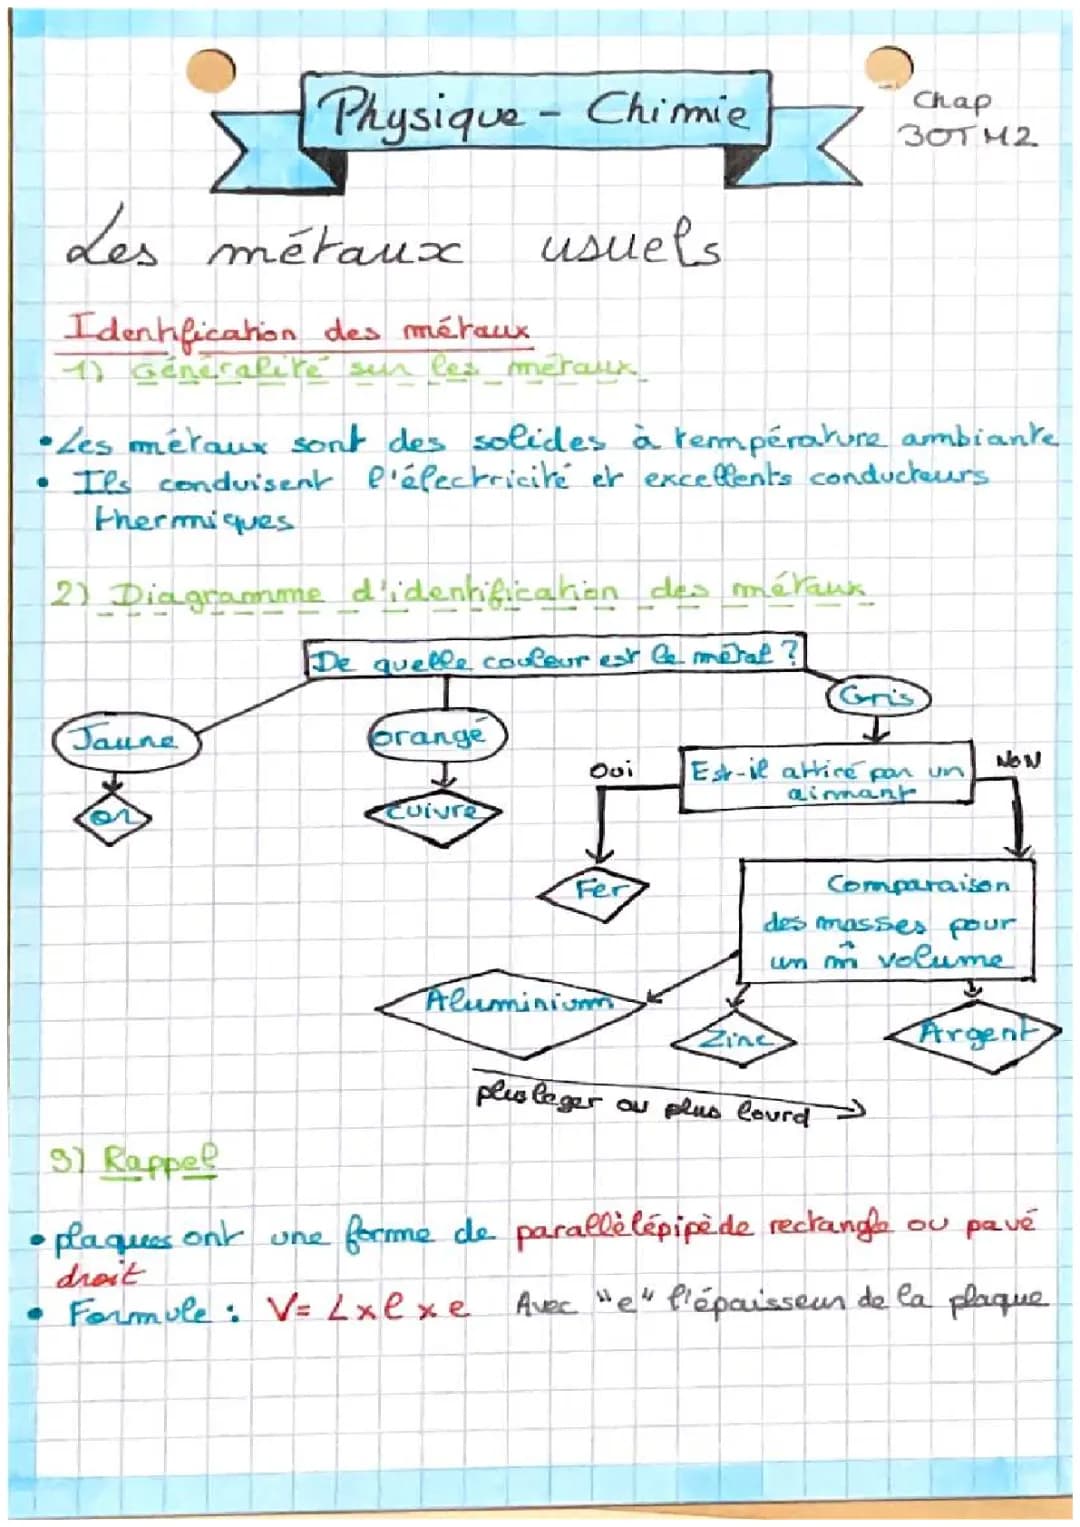 Physique - Chimie
Chap
3OTM2
Les métaux usuels
Identification des métaux
1) Généralité sur les métaux
• Les métaux sont des solides à température ambiante
• Ils conduisent l'électricité et excellents conducteurs
thermiques
2) Diagramme d'identification des métaux
De quelle couleur est le métal ?
Gris
Jaune
orangé
Oui
Est-il attiré par un
aimant
NON
or
cuivre
Fer
Comparaison
des masses pour
un m̂ volume
Aluminium
Zinc
Argent
plus léger ou plus lourd
3) Rappel
• plaques ont une forme de parallèlépipède rectangle ou pavé
droit
• Formule : V = L x l x e Avec "e" l'épaisseur de la plaque